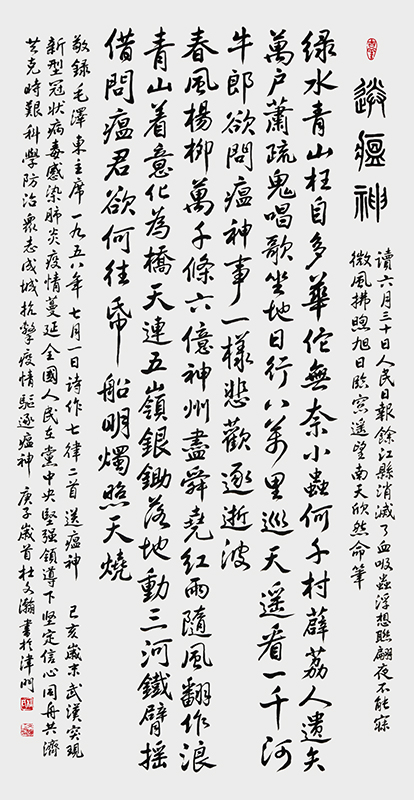 送瘟神
讀六月三十日人民日報餘江縣消滅了血吸蟲浮想聯翩夜不能寐
微風拂煦旭日臨窗遥望南天欣然命筆
绿水青山枉自多華佗無奈小蟲何千村薜荔人遺矢
萬户蕭疏鬼唱歌坐地日行八万里巡天遥看一千河
牛郎欲問瘟神事一樣悲歡逐逝波
春風楊柳萬千條六億神州盡舜堯紅雨隨風翻作浪
青山着意化為橋天連五嶺銀鋤落地動三河鐵臂摇
借問瘟君欲何往帋船明燭照天燒
敬録毛澤東主席一九五八年七月一日诗作七律二首送瘟神 己亥歲末武漢突現
新型冠状病毒感染肺炎疫情蔓延全國人民在黨中央堅强領導下坚定信心同舟共濟
共克時艱科學防治衆志成城抗擊疫情驅逐瘟神 庚子歲首杜文瀚書於津門